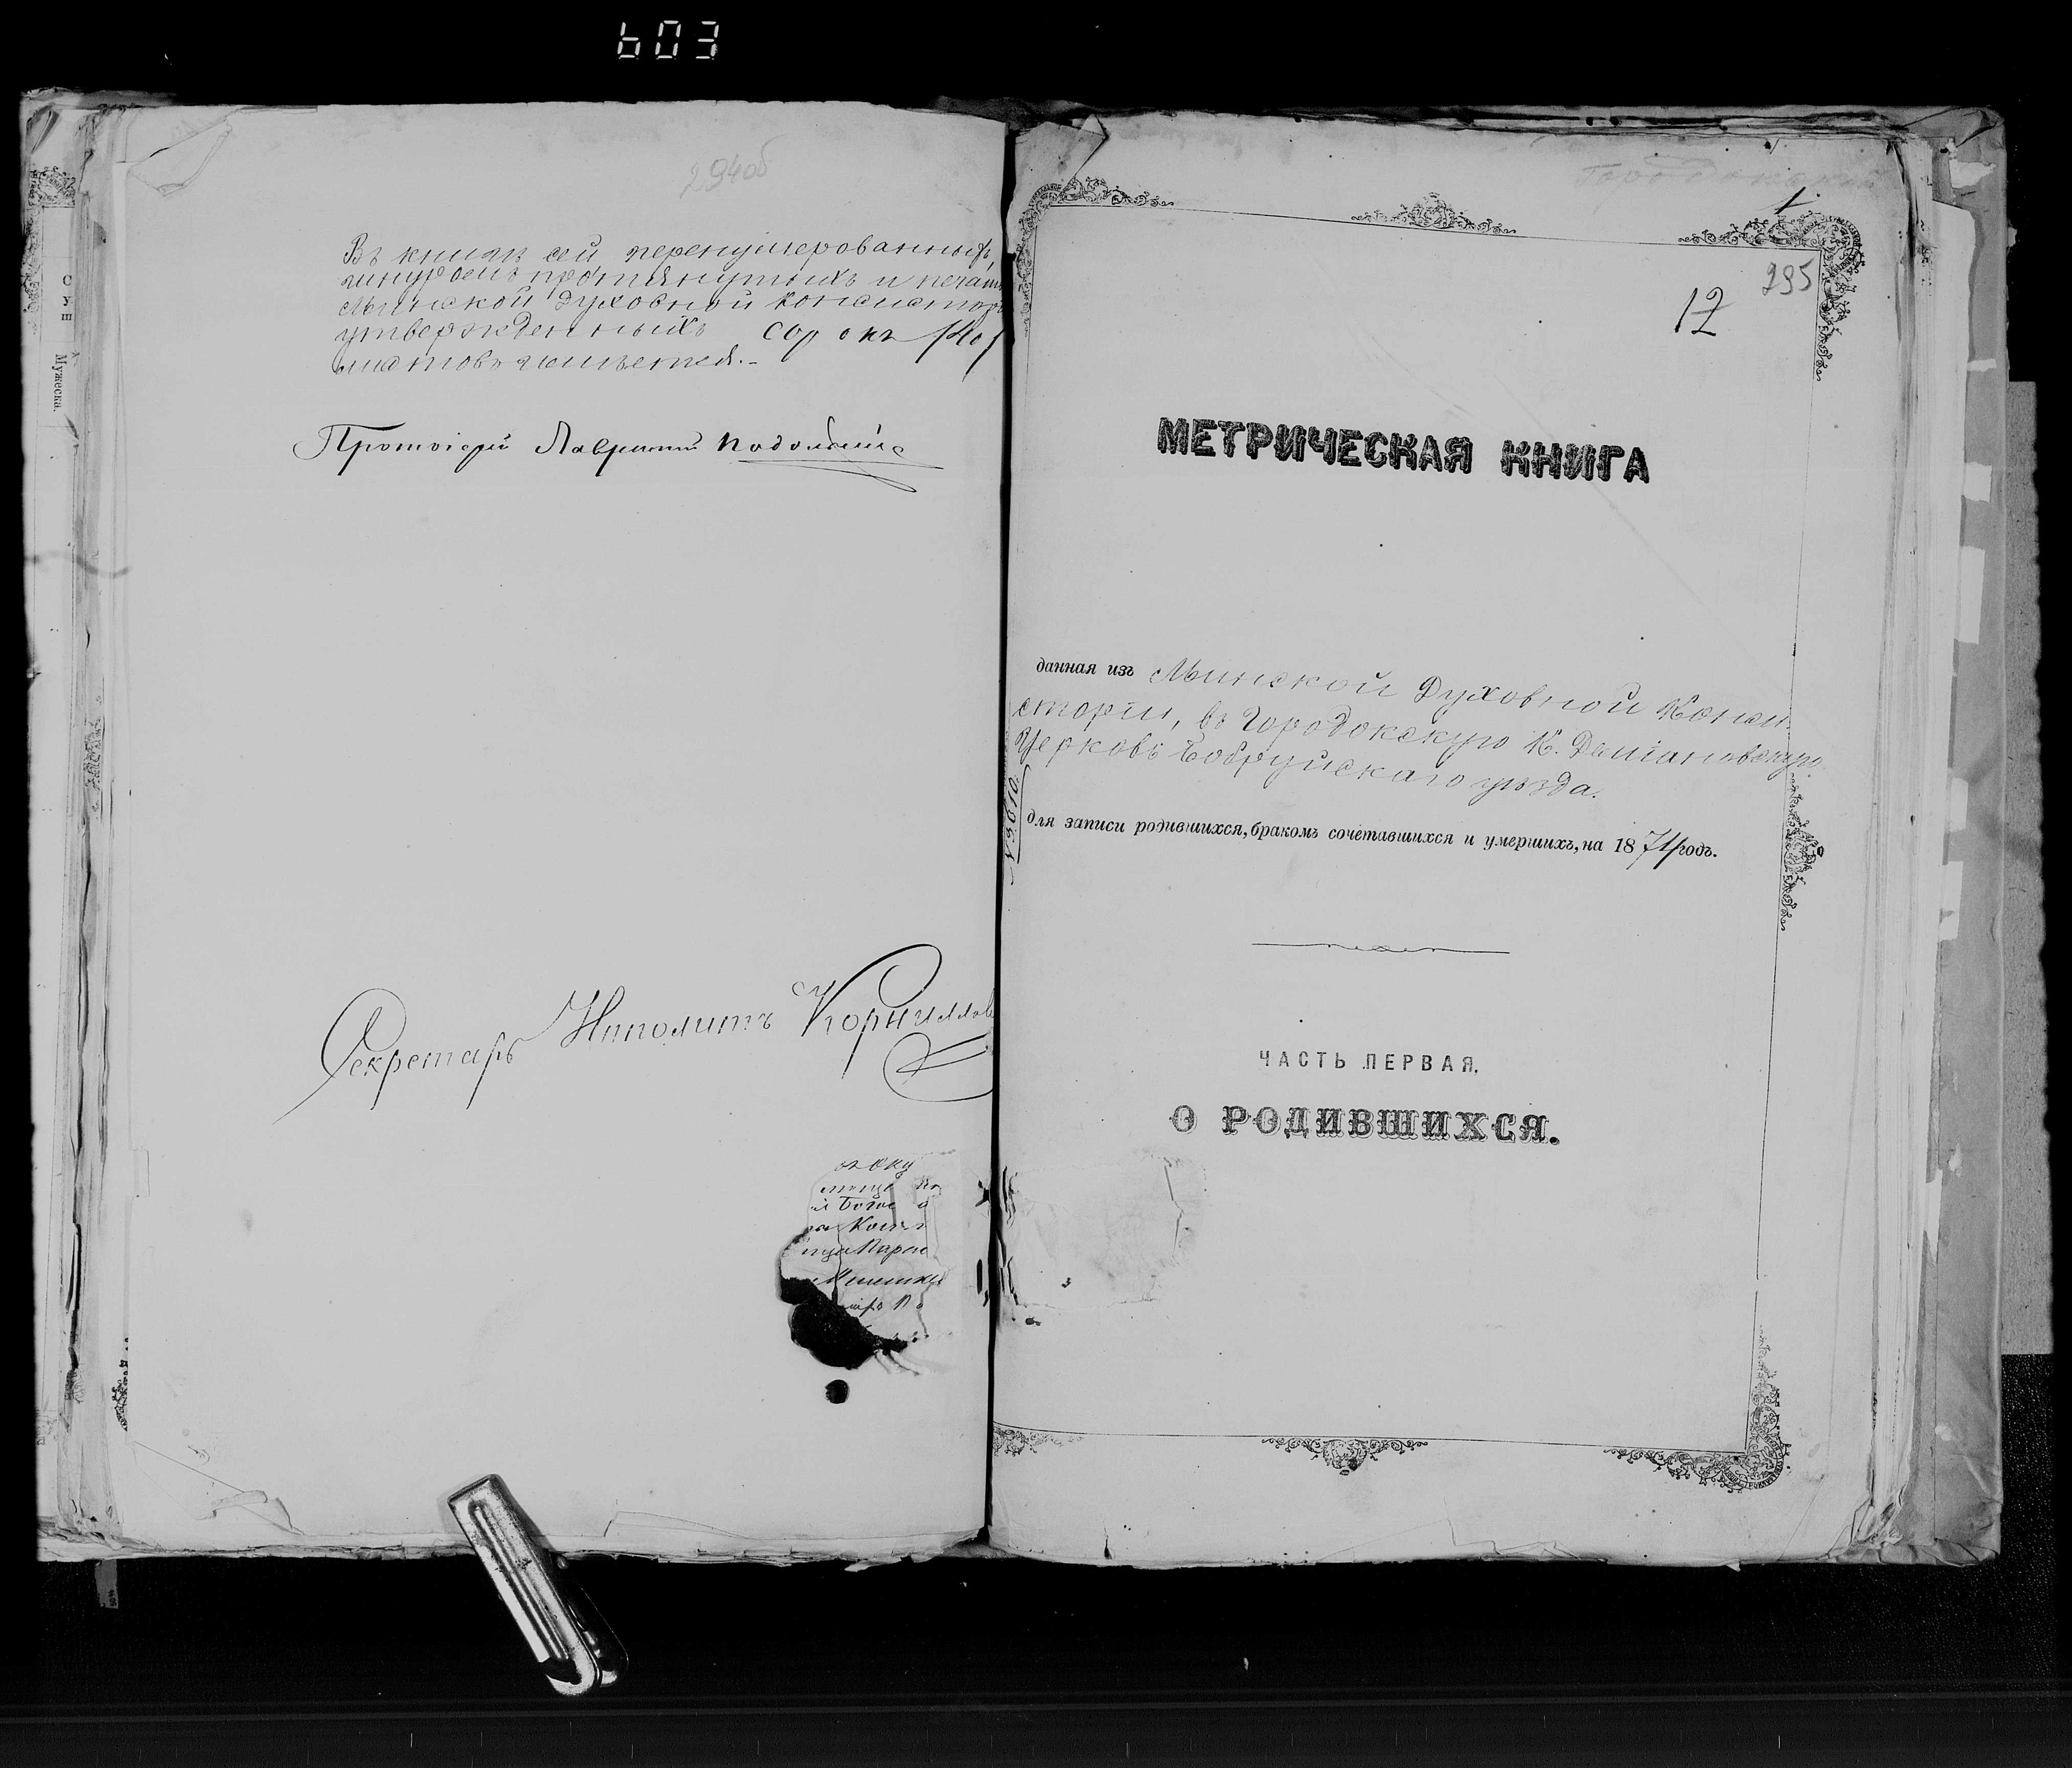 603
294об
Въ книгѣ сей перенумерованныхъ,
шнуромъ протянутыхъ и печатью
Минской Духовной Консисторіи
утвержденныхъ сорокъ /40/
листовъ числится.-
Протоіерей Лаврентій Подольскій
Секретарь Ипполитъ Корнилов
Мужеска.
Городокской
1
295
12
МЕТРИЧЕСКАЯ КНИГА
данная изъ Минской Духовной Конси-
сторіи, въ Городокскую К. Даміановскую
Церковь Бобруйскаго уѣзда.
для записи родившихся, бракомъ сочетавшихся и умершихъ, на 1871 годъ.
ЧАСТЬ ПЕРВАЯ.
О РОДИВШИХСЯ.